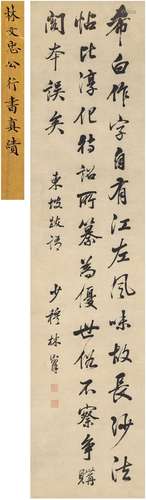 林文忠公行書真蹟
希白作字自有江左風味故長沙法
帖比淳化待詔所摹為優世俗不察爭購
閣本誤矣
東坡跋語
少穆林